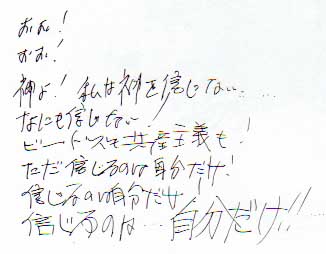 おお!
おお!
神よ! 私は神を信じない……
なにも信じない!
ビートルズも共産主義も!
ただ信じるのは自分だけ!
信じるのは自分だけ!
信じるのは…自分だけ!!